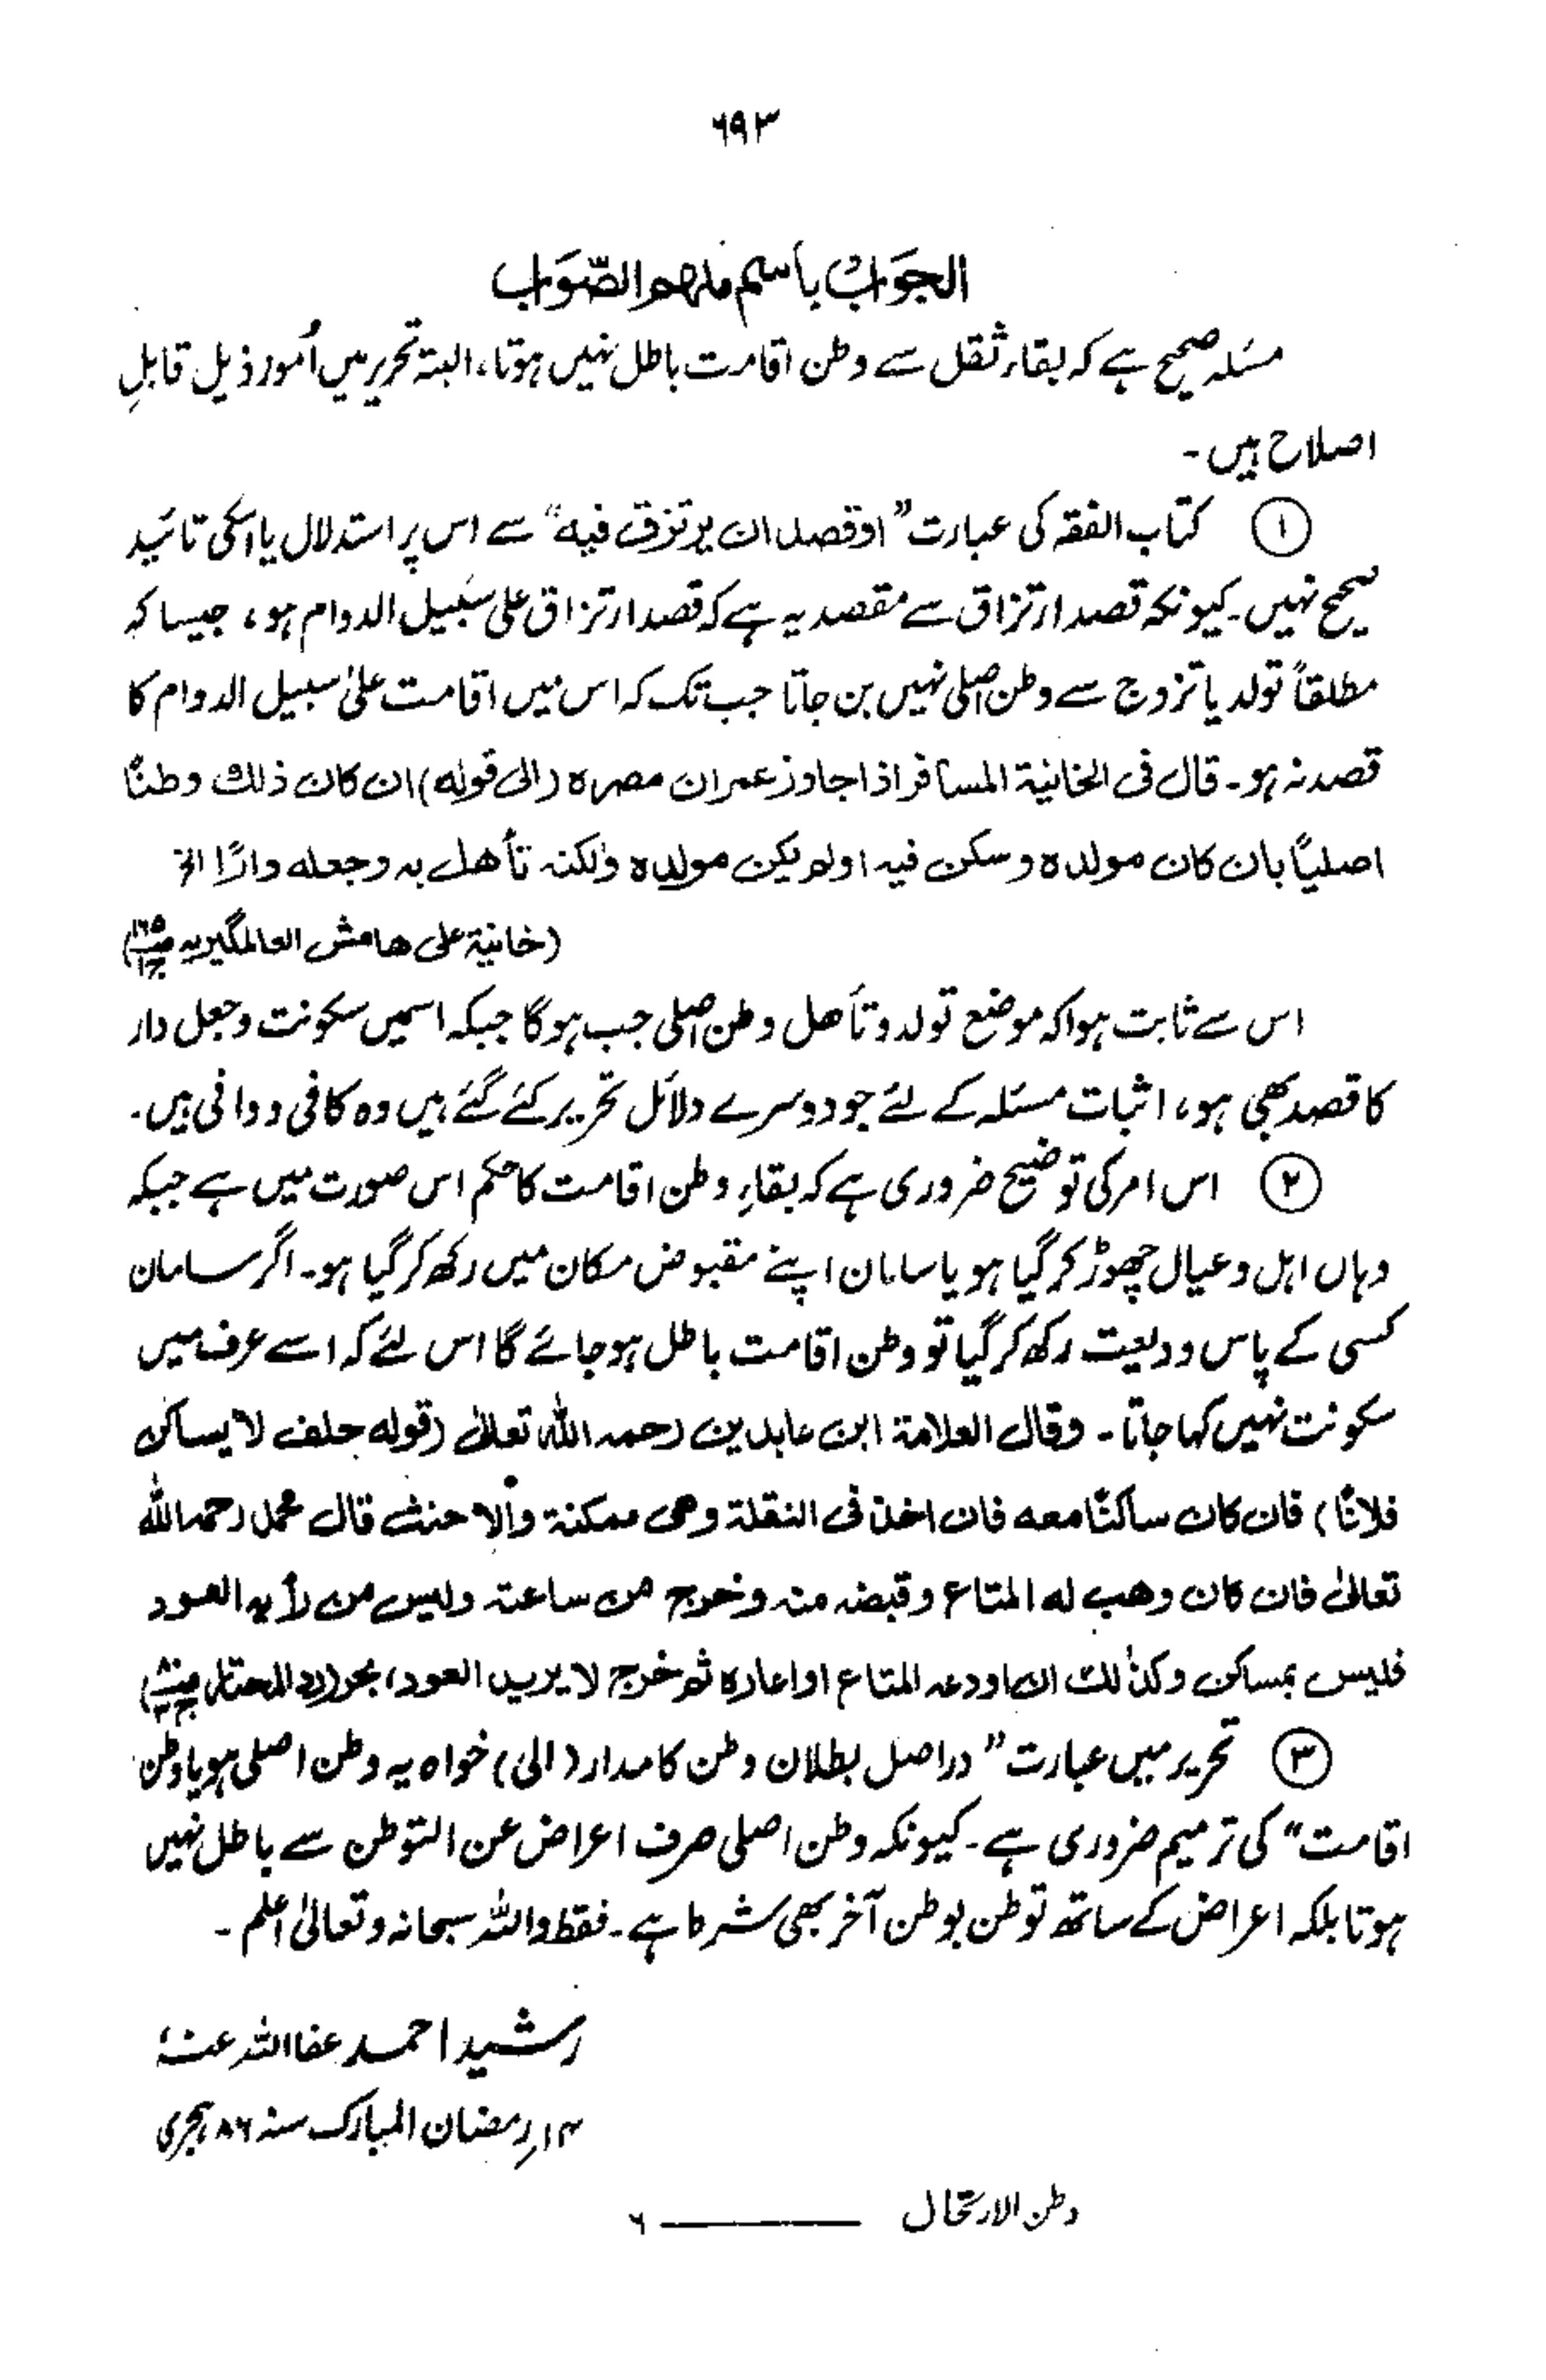 ٦٩٣
الجَوَابُ بِاسم ملهم الصَّوَاب
مسئلہ صحیح ہے کہ بقاء ثقل سے وطن اقامت باطل نہیں ہوتا، البتہ تحریر میں اُمور ذیل قابلِ
اصلاح ہیں۔
① کتاب الفقہ کی عبارت "او قصد ان یرتزق فیه" سے اس پر استدلال یا اسکی تائید
صحیح نہیں۔ کیونکہ قصد ارتزاق سے مقصد یہ ہے کہ قصد ارتزاق علی سبیل الدوام ہو، جیسا کہ
مطلقاً تولد یا تزوج سے وطن اصلی نہیں بن جاتا جب تک کہ اس میں اقامت علیٰ سبیل الدوام کا
قصد نہ ہو۔ قال فی الخانیة المسافر اذا جاوز عمران مصره (الی قوله) ان کان ذلك وطنًا
اصلیًا بان کان مولده وسکن فیه اولم یکن مولده ولکنه تأهل به وجعله دارًا الخ
(خانیة علی هامش العالمگیریه ص۱۶۵ ج۱)
اس سے ثابت ہوا کہ موضع تولد و تأھل وطن اصلی جب ہوگا جبکہ اسمیں سکونت وجعل دار
کا قصد بھی ہو، اثبات مسئلہ کے لئے جو دوسرے دلائل تحریر کئے گئے ہیں وہ کافی ووافی ہیں۔
② اس امر کی توضیح ضروری ہے کہ بقاءِ وطن اقامت کا حکم اس صورت میں ہے جبکہ
وہاں اہل وعیال چھوڑ کر گیا ہو یا سامان اپنے مقبوض مکان میں رکھ کر گیا ہو۔ اگر سامان
کسی کے پاس ودیعت رکھ کر گیا تو وطن اقامت باطل ہوجائے گا اس لئے کہ اسے عرف میں
سکونت نہیں کہا جاتا۔ وقال العلامة ابن عابدین رحمه الله تعالیٰ (قوله حلف لا یساکن
فلانًا) فان کان ساکنًا معه فان اخذ فی النقلة وهی ممکنة والا حنث قال محمد رحمه الله
تعالیٰ فان کان وهب له المتاع وقبضه منه وخرج من ساعته ولیس من رأیه العود
فلیس بمساکن وکذلك ان اودعه المتاع او اعاره ثم خرج لا یرید العود، بحر (رد المحتار
③ تحریر میں عبارت "دراصل بطلان وطن کا مدار (الی) خواہ یہ وطن اصلی ہو یا وطن
اقامت" کی ترمیم ضروری ہے۔ کیونکہ وطن اصلی صرف اعراض عن التوطن سے باطل نہیں
ہوتا بلکہ اعراض کے ساتھ توطن بوطن آخر بھی شرط ہے۔ فقط واللہ سبحانہ وتعالیٰ اعلم۔
رشید احمد عفا اللہ عنہ
۱۴ رمضان المبارک سنہ ۸۶ ہجری
وطن الارتحال ـــــــــ ٦